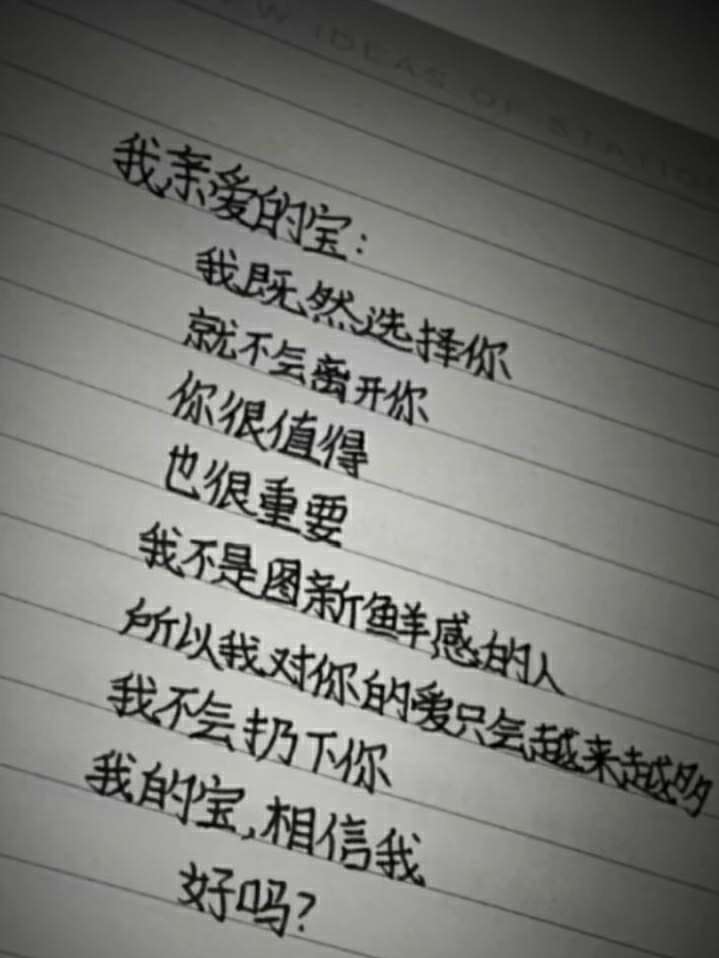 NEW IDEAS OF STATIO
我亲爱的宝：
我既然选择你
就不会离开你
你很值得
也很重要
我不是图新鲜感的人
所以我对你的爱只会越来越多
我不会扔下你
我的宝，相信我
好吗？